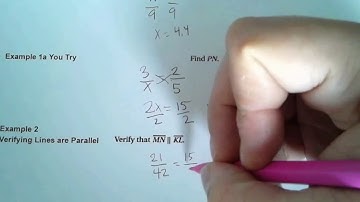 9 9
x = 4.4
Example 1a You Try Find PN.
3/x 2/5
2x/2 = 15/2
Example 2
Verifying Lines are Parallel Verify that MN ∥ KL
21/42 = 15